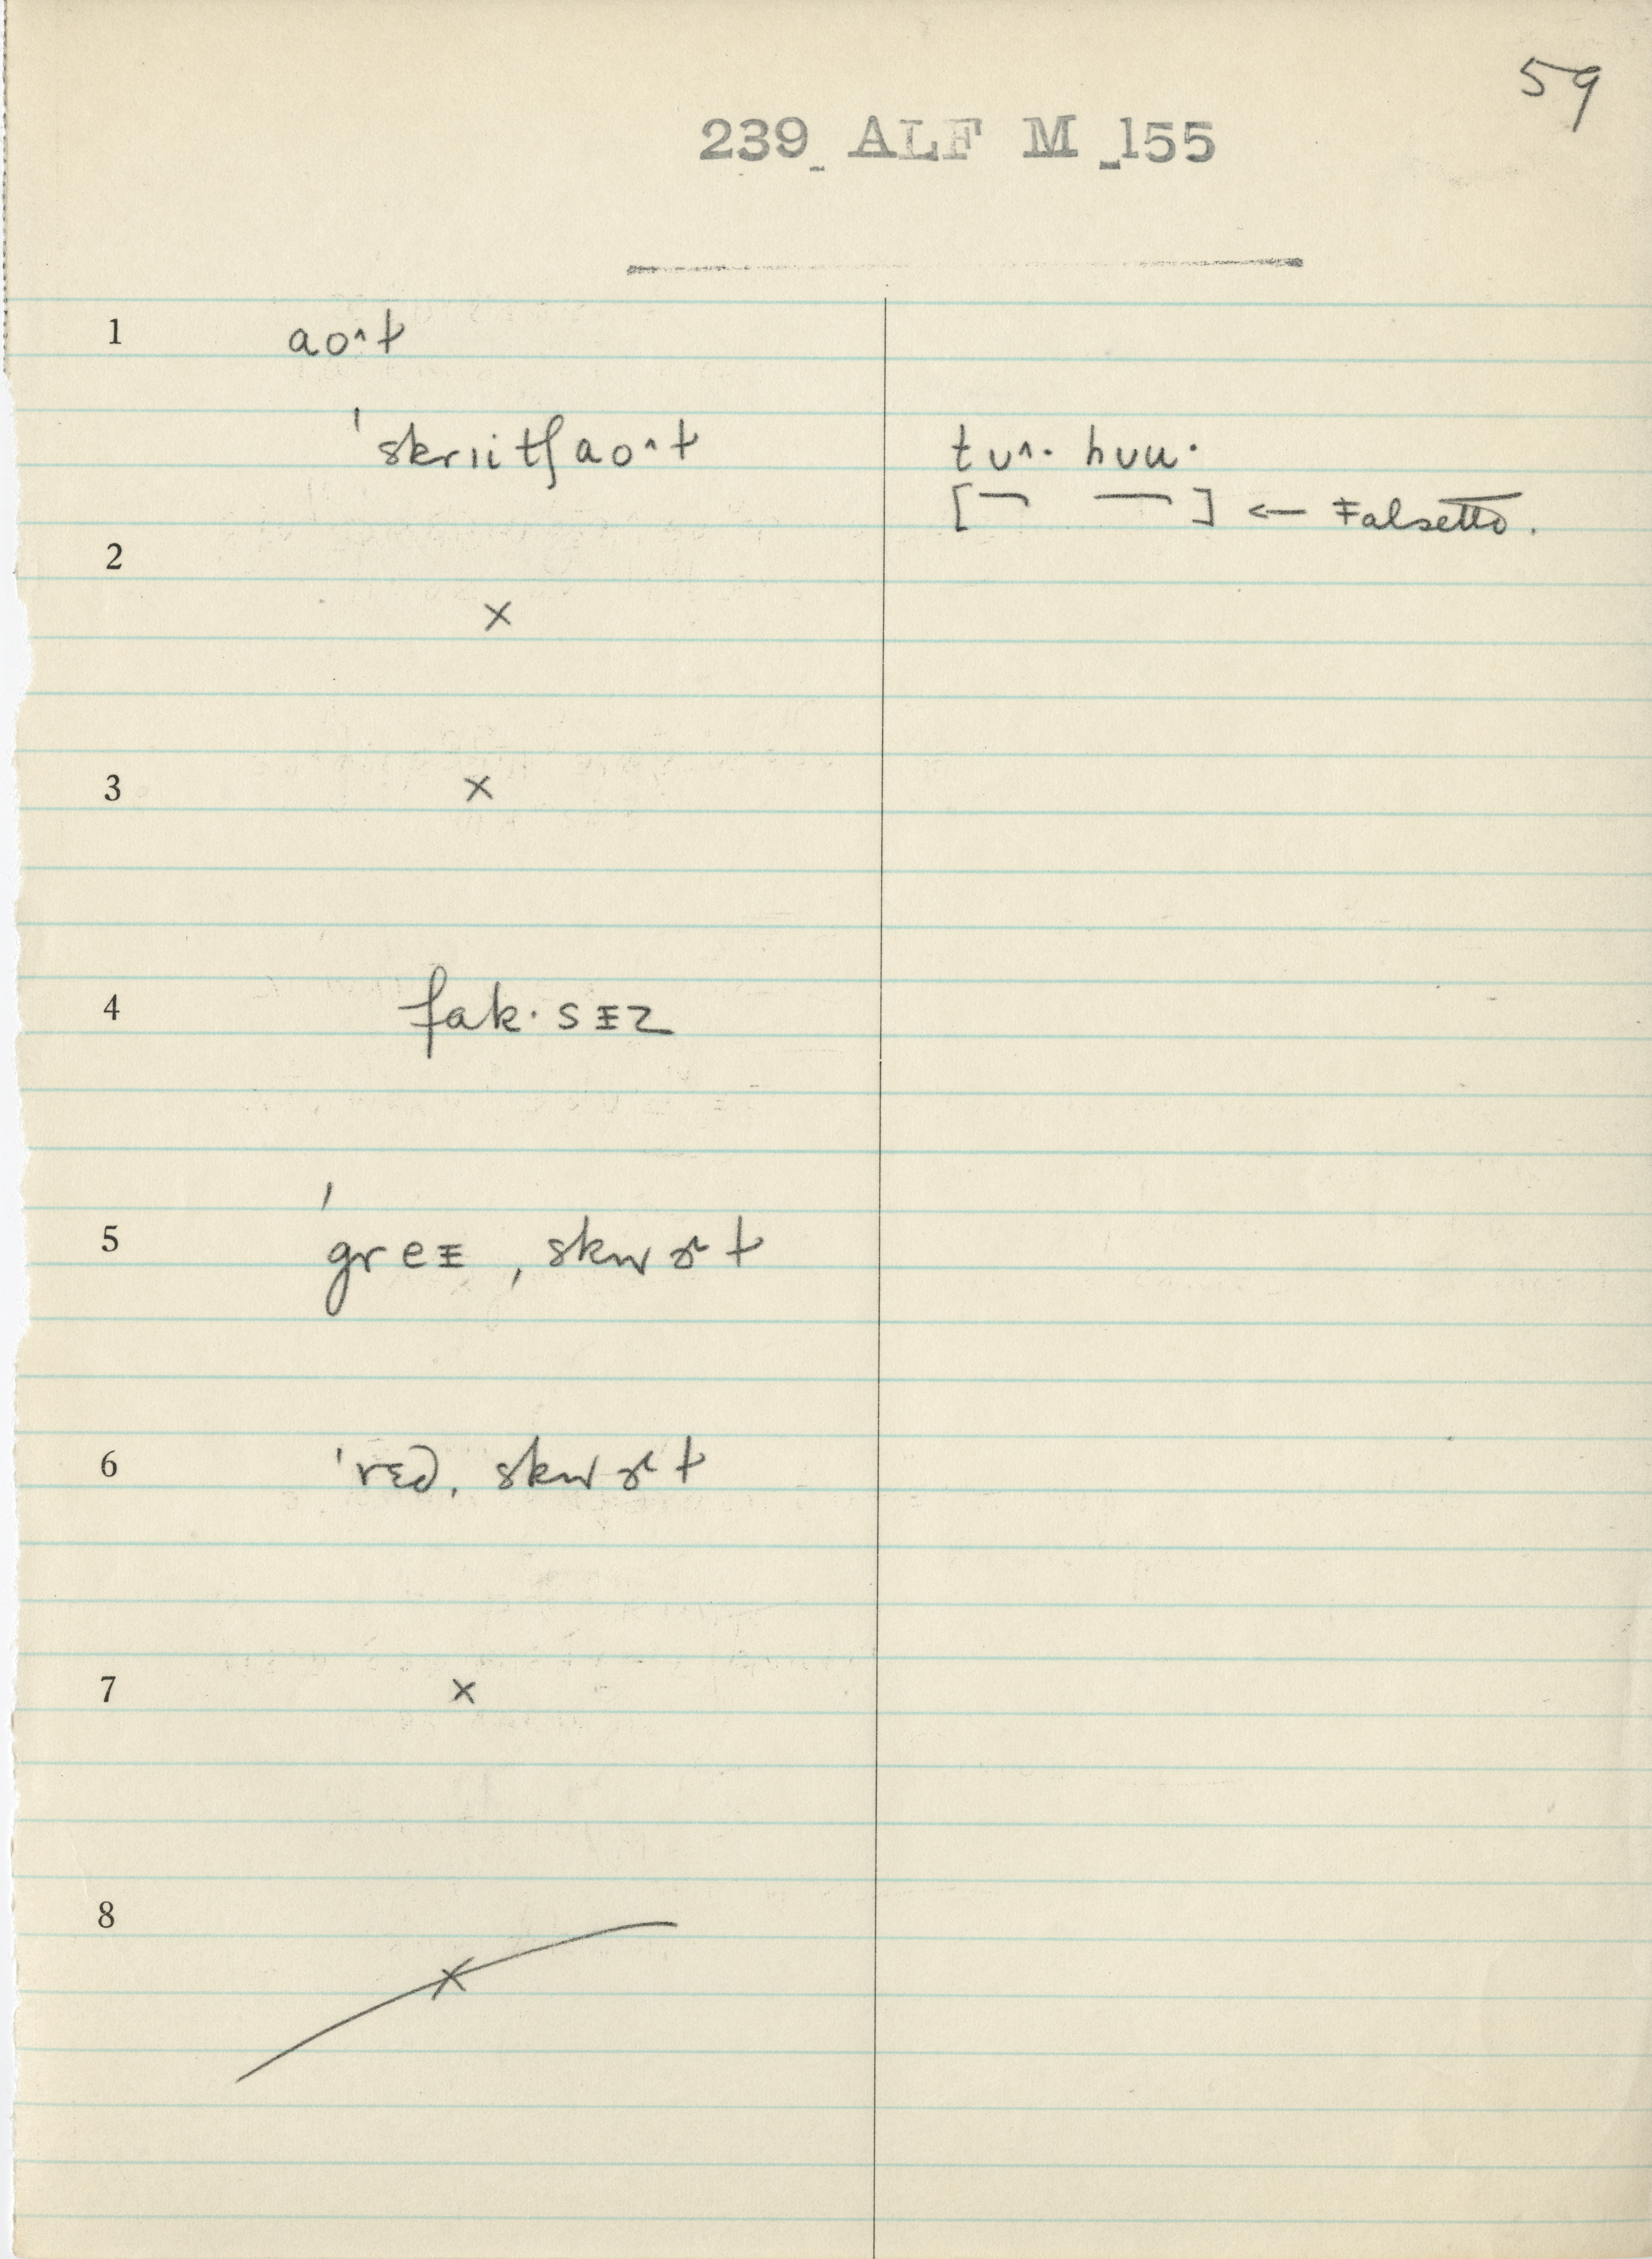 59
239 ALF M 155
1 aoʌt
ˈskriitʃaoʌt tuʌ· huu·
[¯ ¯] ← Falsetto.
2
×
3 ×
4 fak·sɪz
5 ˈgreɪ ˌskwɜt
6 ˈrɛd ˌskwɜt
7 ×
8
×